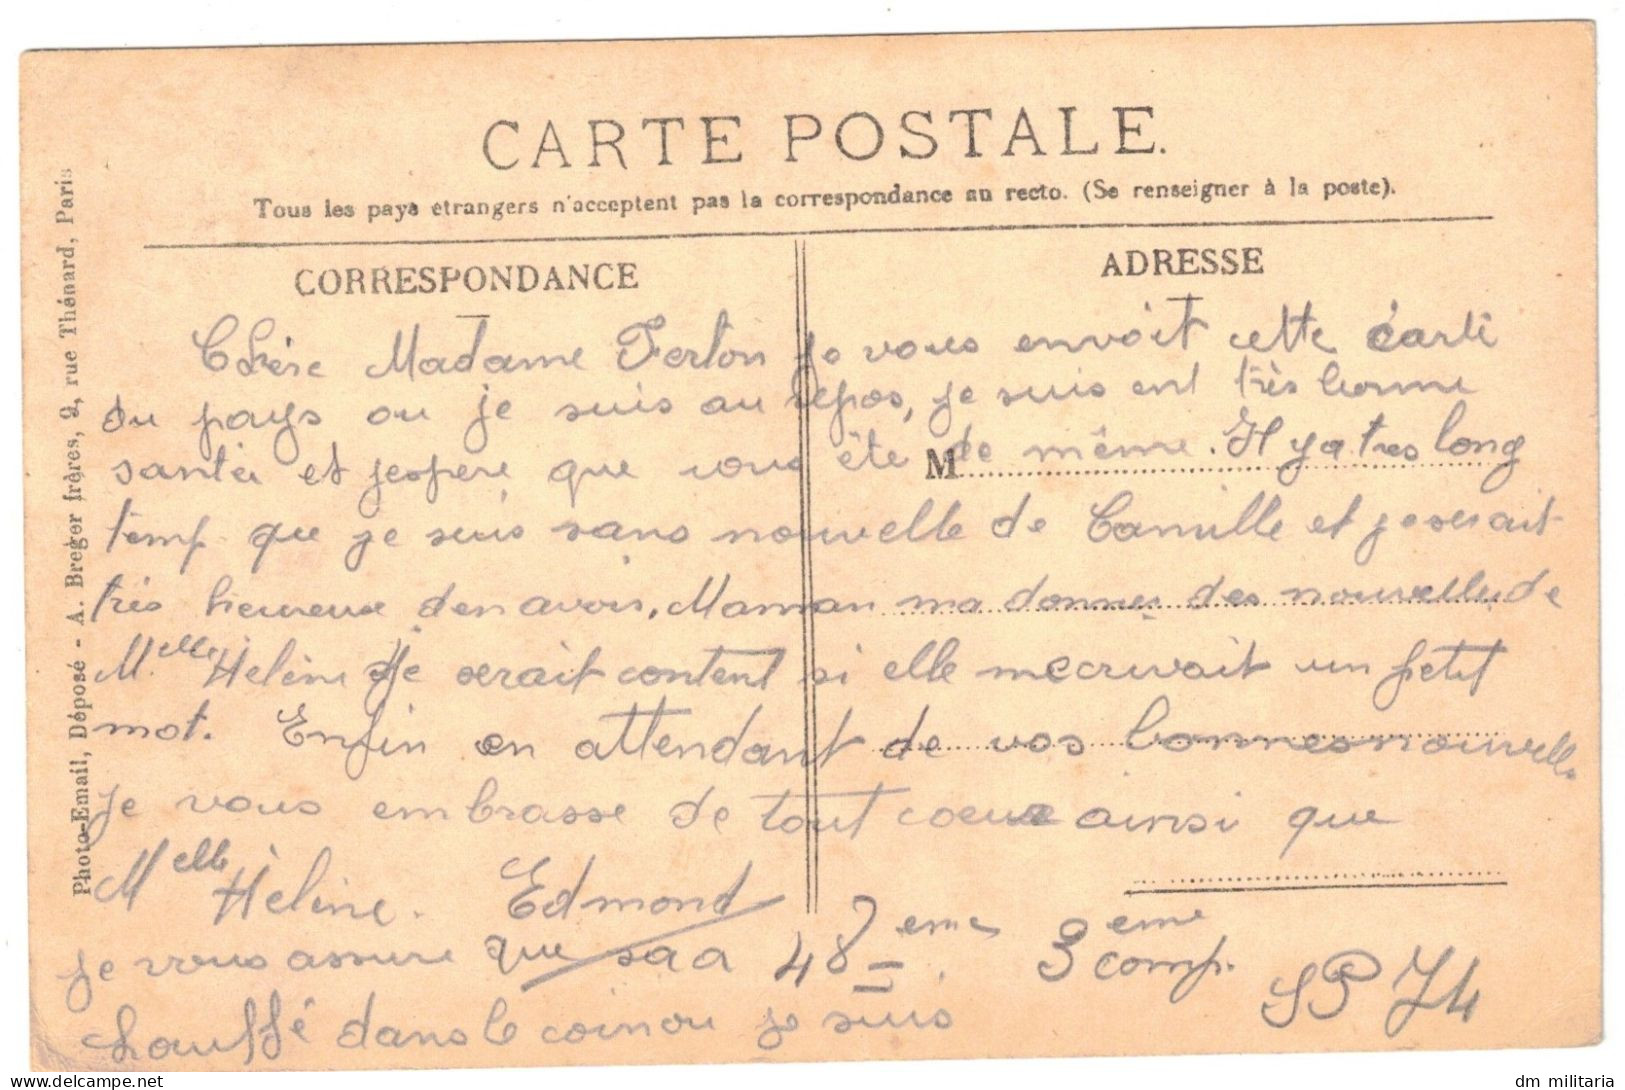 CARTE POSTALE.
Tous les pays étrangers n'acceptent pas la correspondance au recto. (Se renseigner à la poste).
CORRESPONDANCE
ADRESSE
Chère Madame Ferton je vous envoit cette carte
du pays ou je suis au repos, je suis ent très bonne
santer et jespere que vous ète de même. Il y a tres long
M
temp que je suis sans nouvelle de Camille et je serait
très heureux den avoir. Maman ma donner des nouvelle de
Melle Helène Je serait content si elle mecrivait un petit
mot. Enfin en attendant de vos bonnes nouvelle
je vous embrasse de tout coeur ainsi que
Melle Helène. Edmond
je vous assure que sa a 48eme 3eme comp. SP 74
chauffé dans le coin ou je suis
Photo-Email, Déposé - A. Breger frères, 9, rue Thénard, Paris
dm militaria